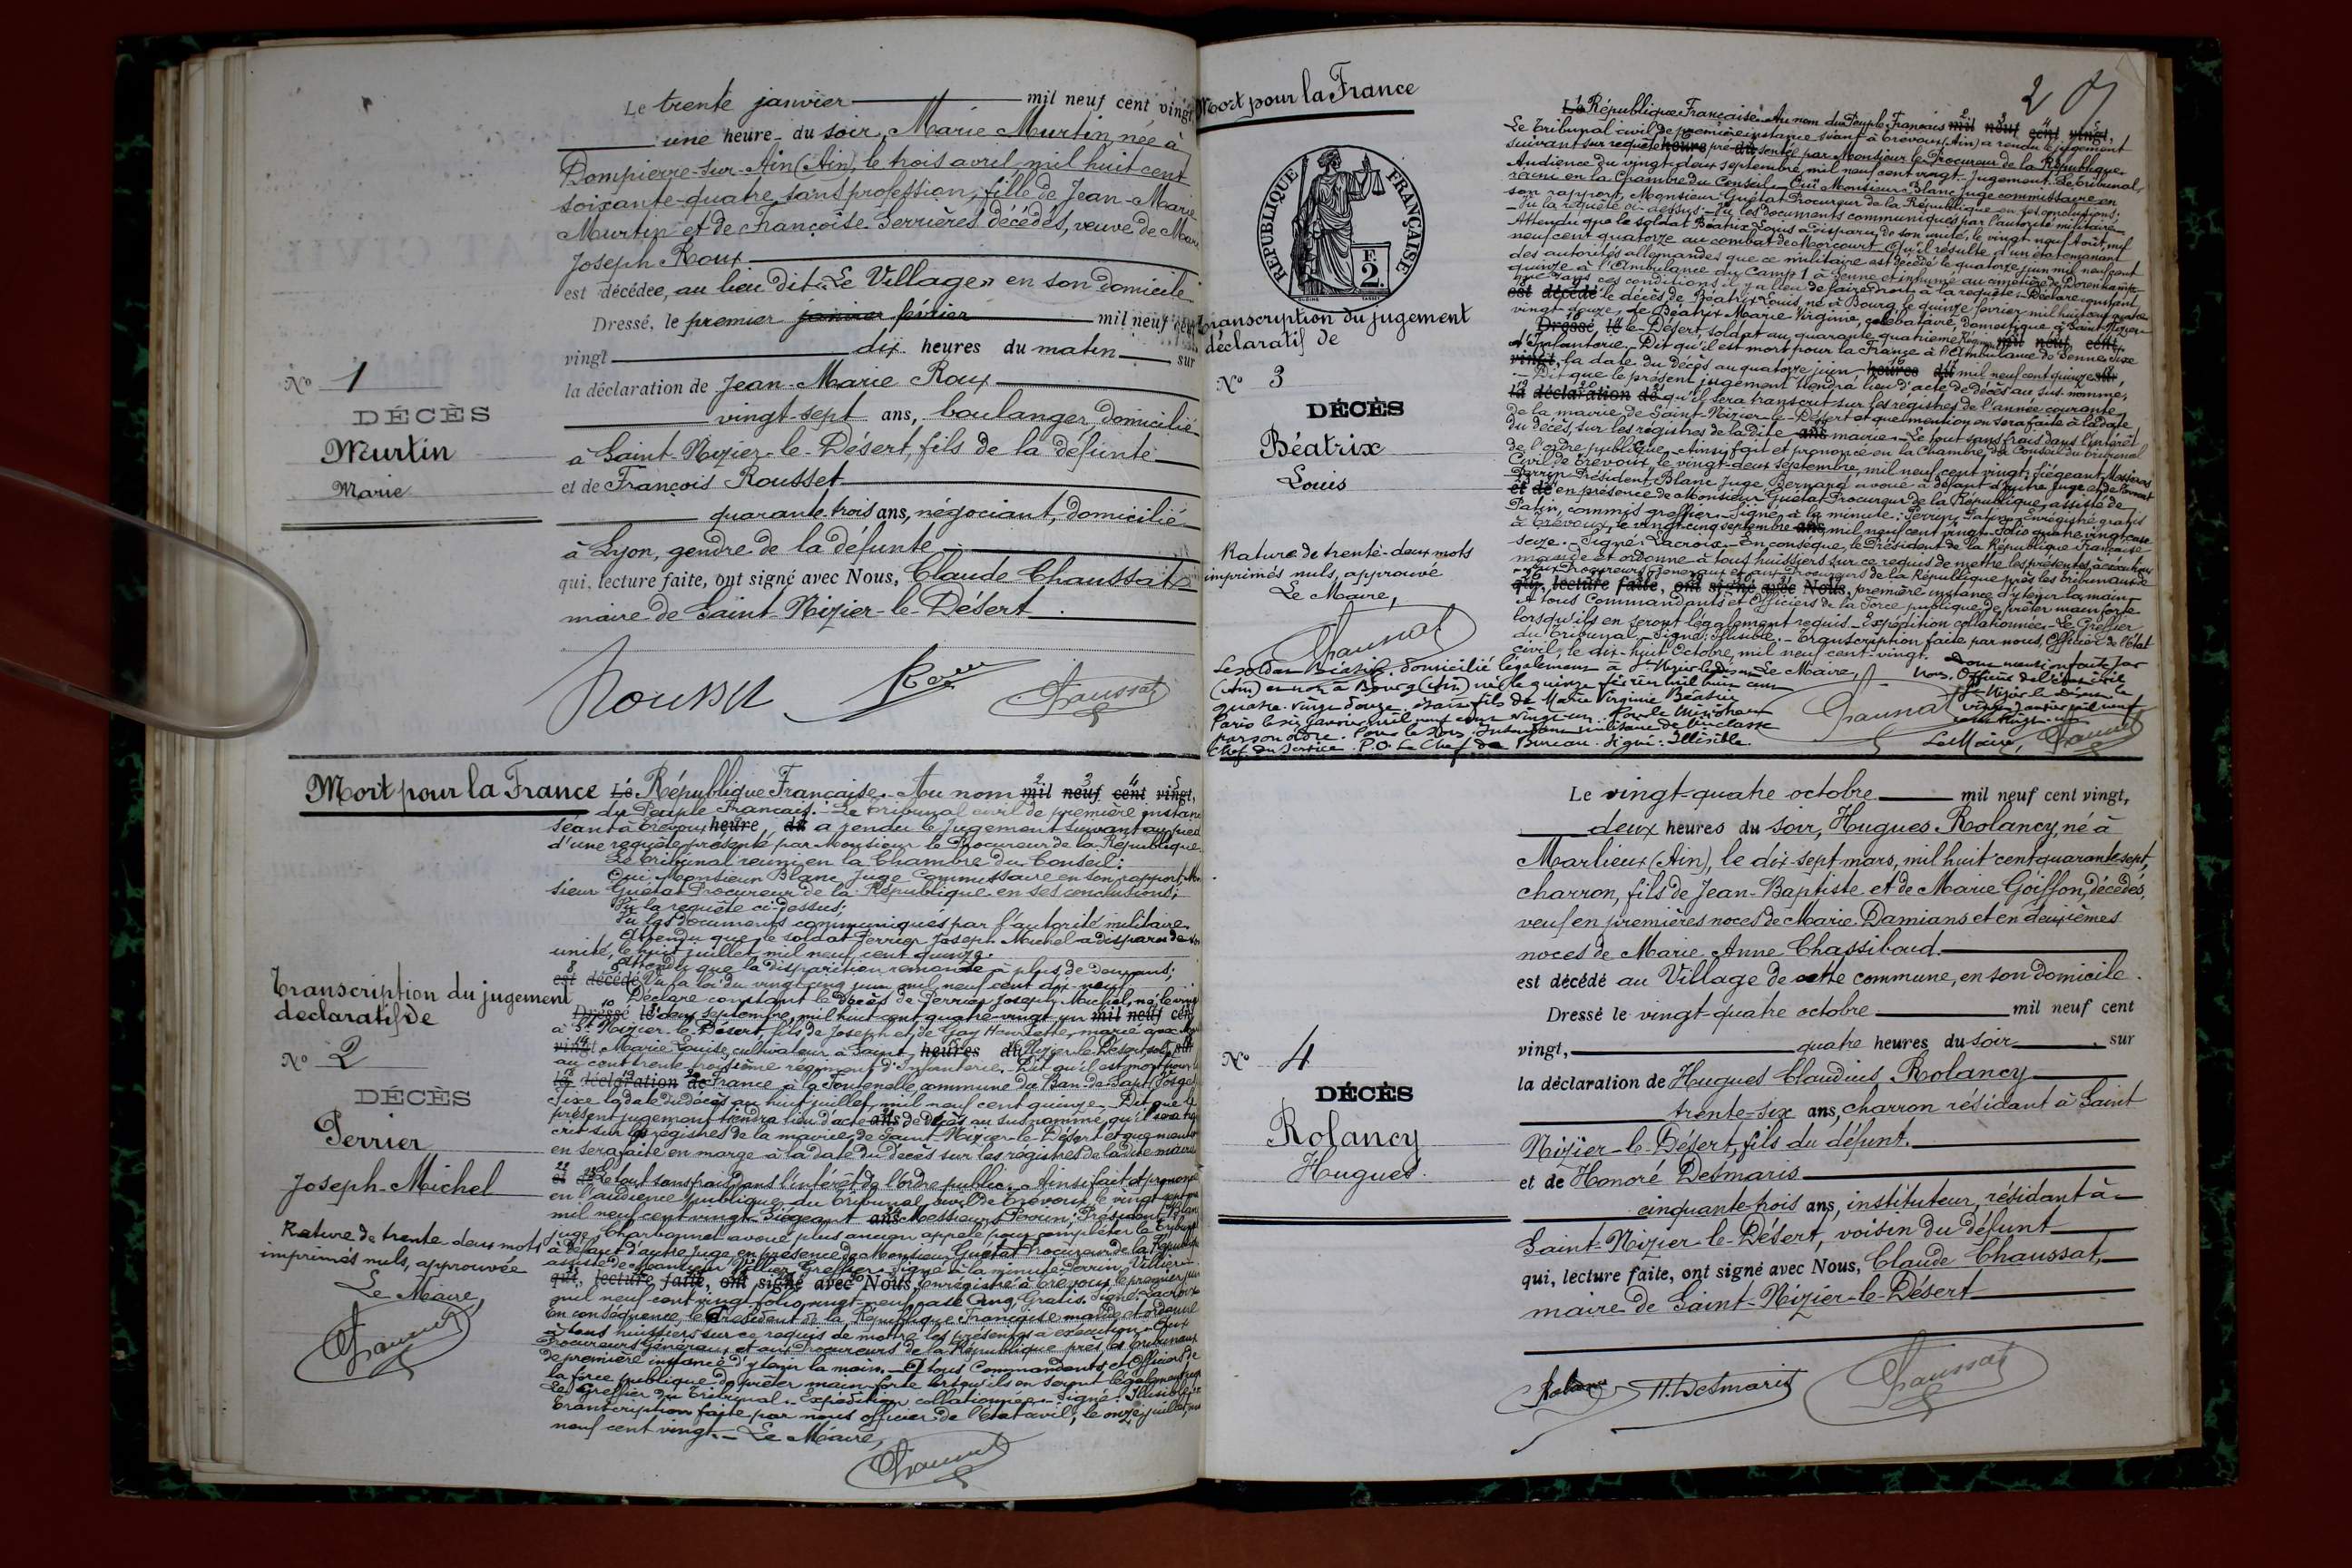 Le trente janvier mil neuf cent vingt
une heure du soir, Marie Murtin, née à
Dompierre-sur-Ain (Ain), le trois avril mil huit cent
soixante-quatre, sans profession, fille de Jean-Marie
Murtin et de Françoise Serrières décédés, veuve de
Joseph Roux
est décédée, au lieu dit "Le Village" en son domicile
Dressé, le premier janvier février mil neuf cent
vingt dix heures du matin sur
la déclaration de Jean-Marie Roux
vingt-sept ans, boulanger, domicilié
à Saint-Nizier-le-Désert, fils de la défunte
et de François Rousset
quarante trois ans, négociant, domicilié
à Lyon, gendre de la défunte
qui, lecture faite, ont signé avec Nous, Claude Chaussat
maire de Saint-Nizier-le-Désert.
Nº 1
DÉCÈS
Murtin
Marie
Rousset Roux Chaussat
Mort pour la France
Transcription du jugement
déclaratif de
Nº 2
DÉCÈS
Perrier
Joseph-Michel
Rature de trente deux mots
imprimés nuls, approuvée
Le Maire,
Chaussat
Le République Française. Au nom mil neuf cent vingt,
du Peuple Français. Le Tribunal civil de première instance
séant à Trévoux heure du a rendu le jugement suivant au pied
d'une requête présenté par Monsieur le Procureur de la République.
Le Tribunal réuni en la Chambre du Conseil:
Oui Monsieur Blanc Juge Commissaire en son rapport, Mon
sieur Guétat Procureur de la République en ses conclusions;
Vu la requête ci-dessus;
Vu les documents communiqués par l'autorité militaire.
Attendu que le soldat Perrier Joseph Michel a disparu de son
unité, le huit juillet mil neuf cent quinze.
Attendu que la disparition remonte à plus de deux ans;
est décédé Vu la loi du vingt cinq juin mil neuf cent dix-neuf
Déclare constant le décès de Perrier Joseph Michel, né le vingt
Dressé le deux septembre, mil huit cent quatre-vingt un mil neuf cent
à St Nizier-le-Désert, fils de Joseph et de Gay Henriette, marié avec
vingt Marie Louise, cultivateur à Saint heures du Nizier-le-Désert, soldat sur
au cent trente troisième régiment d'Infanterie. Dit qu'il est mort pour la
la déclaration de France à la Fontenelle commune du Ban-de-Sapt (Vosges)
Fixe la date du décès au huit juillet mil neuf cent quinze. Dit que le
présent jugement tiendra lieu d'acte ans de décès au susnommé, qu'il sera trans
crit sur les régistres de la mairie de Saint-Nizier-le-Désert et que mention
en sera faite en marge à la date du décès sur les régistres de ladite mairie
et de Le tout sans frais dans l'intérêt de l'ordre public. Ainsi fait et prononcé
en l'audience publique du Tribunal civil de Trévoux, le vingt sept
mil neuf cent vingt. Siégeant ans Messieurs Perrin, Président, Blanc
juge, Charbonnet avoué plus ancien appelé pour compléter le Tribunal
à défaut d'autre juge, en présence de Monsieur Guétat Procureur de la République
assisté de Monsieur Villier Greffier. Signé à la minute: Perrin, Villier.
qui, lecture faite, ont signé avec Nous, enrégistré à Trévoux, le premier
mil neuf cent vingt folio vingt-neuf case cinq, Gratis. Signé: Lacroix
En conséquence, le Président de la République Française mande et ordonne
à tous huissiers sur ce requis de mettre les présentes à exécution. Aux
Procureurs Généraux et aux Procureurs de la République près les Tribunaux
de première instance d'y tenir la main. A tous Commandants et Officiers de
la force publique de prêter main-forte lorsqu'ils en seront légalement
Le Greffier du Tribunal. Expédition collationnée. Signé: Illisible.
Transcription faite par nous officier de l'état civil, le onze juillet, mil
neuf cent vingt. Le Maire,
Chaussat
Mort pour la France
RÉPUBLIQUE FRANÇAISE
F.
2.
Transcription du jugement
déclaratif de
Nº 3
DÉCÈS
Béatrix
Louis
Rature de trente-deux mots
imprimés nuls, approuvé
Le Maire,
Chaussat
Le soldat Béatrix domicilié légalement à St Nizier le Désert
(Ain) est né à Bourg (Ain) né le quinze février mil huit cent
quatre-vingt-douze, était fils de Marie Virginie Béatrix
Paris le six janvier mil neuf cent vingt-un. Pour le Ministre
par son ordre. Pour le Sous Intendant militaire de classe
Chef du service. P.O. Le Chef de Bureau. Signé: Illisible.
2
La République Française. Au nom du Peuple Français mil neuf cent vingt,
Le Tribunal civil de première instance séant à Trévoux (Ain) a rendu le jugement
suivant sur requête heure pré du sentée par Monsieur le Procureur de la République.
Audience du vingt-deux septembre mil neuf cent vingt. Jugement. Le Tribunal,
réuni en la Chambre du Conseil. Oui Monsieur Blanc Juge commissaire en
son rapport, Monsieur Guétat Procureur de la République en ses conclusions;
Vu la requête ci-dessus; Vu les documents communiqués par l'autorité militaire.
Attendu que le soldat Béatrix Louis a disparu de son unité, le vingt neuf Août, mil
neuf cent quatorze au combat de Morcourt. Qu'il résulte d'un état émanant
des autorités allemandes que ce militaire est décédé le quatorze juin mil neuf cent
quinze à l'Ambulance du Camp 1 à Senne et inhumé au cimetière de Dorenkamp.
que dans ces conditions il y a lieu de faire droit à la requête. Déclare constant
est décédé le décès de Béatrix Louis, né à Bourg, le quinze février mil huit cent quatre
vingt douze, de Béatrix Marie Virginie, célibataire, domestique à Saint-Nizier
Dressé, le le-Désert, soldat au quarante quatrième Régiment mil neuf cent,
d'Infanterie. Dit qu'il est mort pour la France à l'Ambulance de Senne. Fixe
vingt, la date du décès au quatorze juin heures du mil neuf cent quinze sur,
Dit que le présent jugement tiendra lieu d'acte de décès au sus-nommé,
la déclaration de qu'il sera transcrit sur les régistres de l'année courante
de la mairie de Saint-Nizier-le-Désert et que mention en sera faite à la date
du décès, sur les régistres de la dite ans mairie. Le tout sans frais dans l'intérêt
de l'ordre publique. Ainsi fait et prononcé en la Chambre du Conseil du Tribunal
Civil de Trévoux, le vingt-deux septembre, mil neuf cent vingt; Siégeant Messieurs
Perrin Président, Blanc Juge, Bernard avoué à défaut d'autre Juge
et de en présence de Monsieur Guétat Procureur de la République, assisté de
Patin, commis greffier. Signé à la minute: Perrin, Patin. Enregistré gratis
à Trévoux, le vingt cinq septembre ans, mil neuf cent vingt. Folio quatre vingt case
seize. Signé: Lacroix. En conséque, le Président de la République Française
mande et ordonne à tous huissiers sur ce requis de mettre les présentes à exécution
aux Procureurs Généraux et aux Procureurs de la République près les Tribunaux de
qui, lecture faite, ont signé avec Nous, première instance d'y tenir la main
à tous Commandants et Officiers de la Force publique de prêter main forte
lorsqu'ils en seront légalement requis. Expédition collationnée. Le Greffier
du Tribunal. Signé: Illisible. Transcription faite par nous, Officier de l'état
civil, le dix-huit Octobre, mil neuf cent vingt.
Le Maire,
Chaussat
Dont mention faite par
Nous, Officier de l'état civil
St Nizier le Désert le
vingt janvier mil neuf
cent vingt-un
Le Maire, Chaussat
Le vingt-quatre octobre mil neuf cent vingt,
deux heures du soir, Hugues Rolancy, né à
Marlieux (Ain), le dix-sept mars, mil huit cent quarante sept,
charron, fils de Jean-Baptiste et de Marie Goiffon, décédés,
veuf en premières noces de Marie Damians et en deuxièmes
noces de Marie Anne Chassibaud.
est décédé au Village de cette commune, en son domicile.
Dressé le vingt-quatre octobre mil neuf cent
vingt, quatre heures du soir, sur
la déclaration de Hugues Claudius Rolancy
trente-six ans, charron résidant à Saint
Nizier-le-Désert, fils du défunt.
et de Honoré Desmaris
cinquante-trois ans, instituteur, résidant à
Saint-Nizier-le-Désert, voisin du défunt
qui, lecture faite, ont signé avec Nous, Claude Chaussat,
maire de Saint-Nizier-le-Désert
Nº 4
DÉCÈS
Rolancy
Hugues
Rolancy H. Desmaris Chaussat